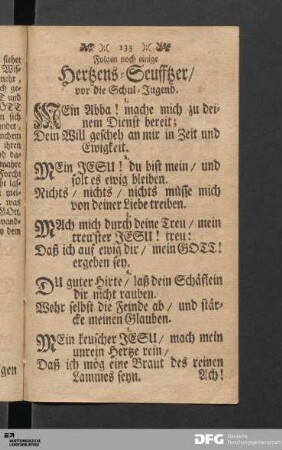 133
Folgen noch einige
Hertzens-Seufftzer/
vor die Schul-Jugend.
1.
MEin Abba! mache mich zu dei-
nem Dienst bereit;
Dein Will gescheh an mir in Zeit und
Ewigkeit.
MEin JESU! du bist mein/ und
solt es ewig bleiben.
Nichts/ nichts/ nichts müsse mich
von deiner Liebe treiben.
MAch mich durch deine Treu/ mein
treuster JESU! treu:
Daß ich auf ewig dir/ mein GOTT!
ergeben sey.
DU guter Hirte/ laß dein Schäflein
dir nicht rauben.
Wehr selbst die Feinde ab/ und stär-
cke meinen Glauben.
MEin keuscher JESU/ mach mein
unrein Hertze rein/
Daß ich mög eine Braut des reinen
Lammes seyn.
Ach!
gen
DFG
Deutsche
Forschungsgemeinschaft